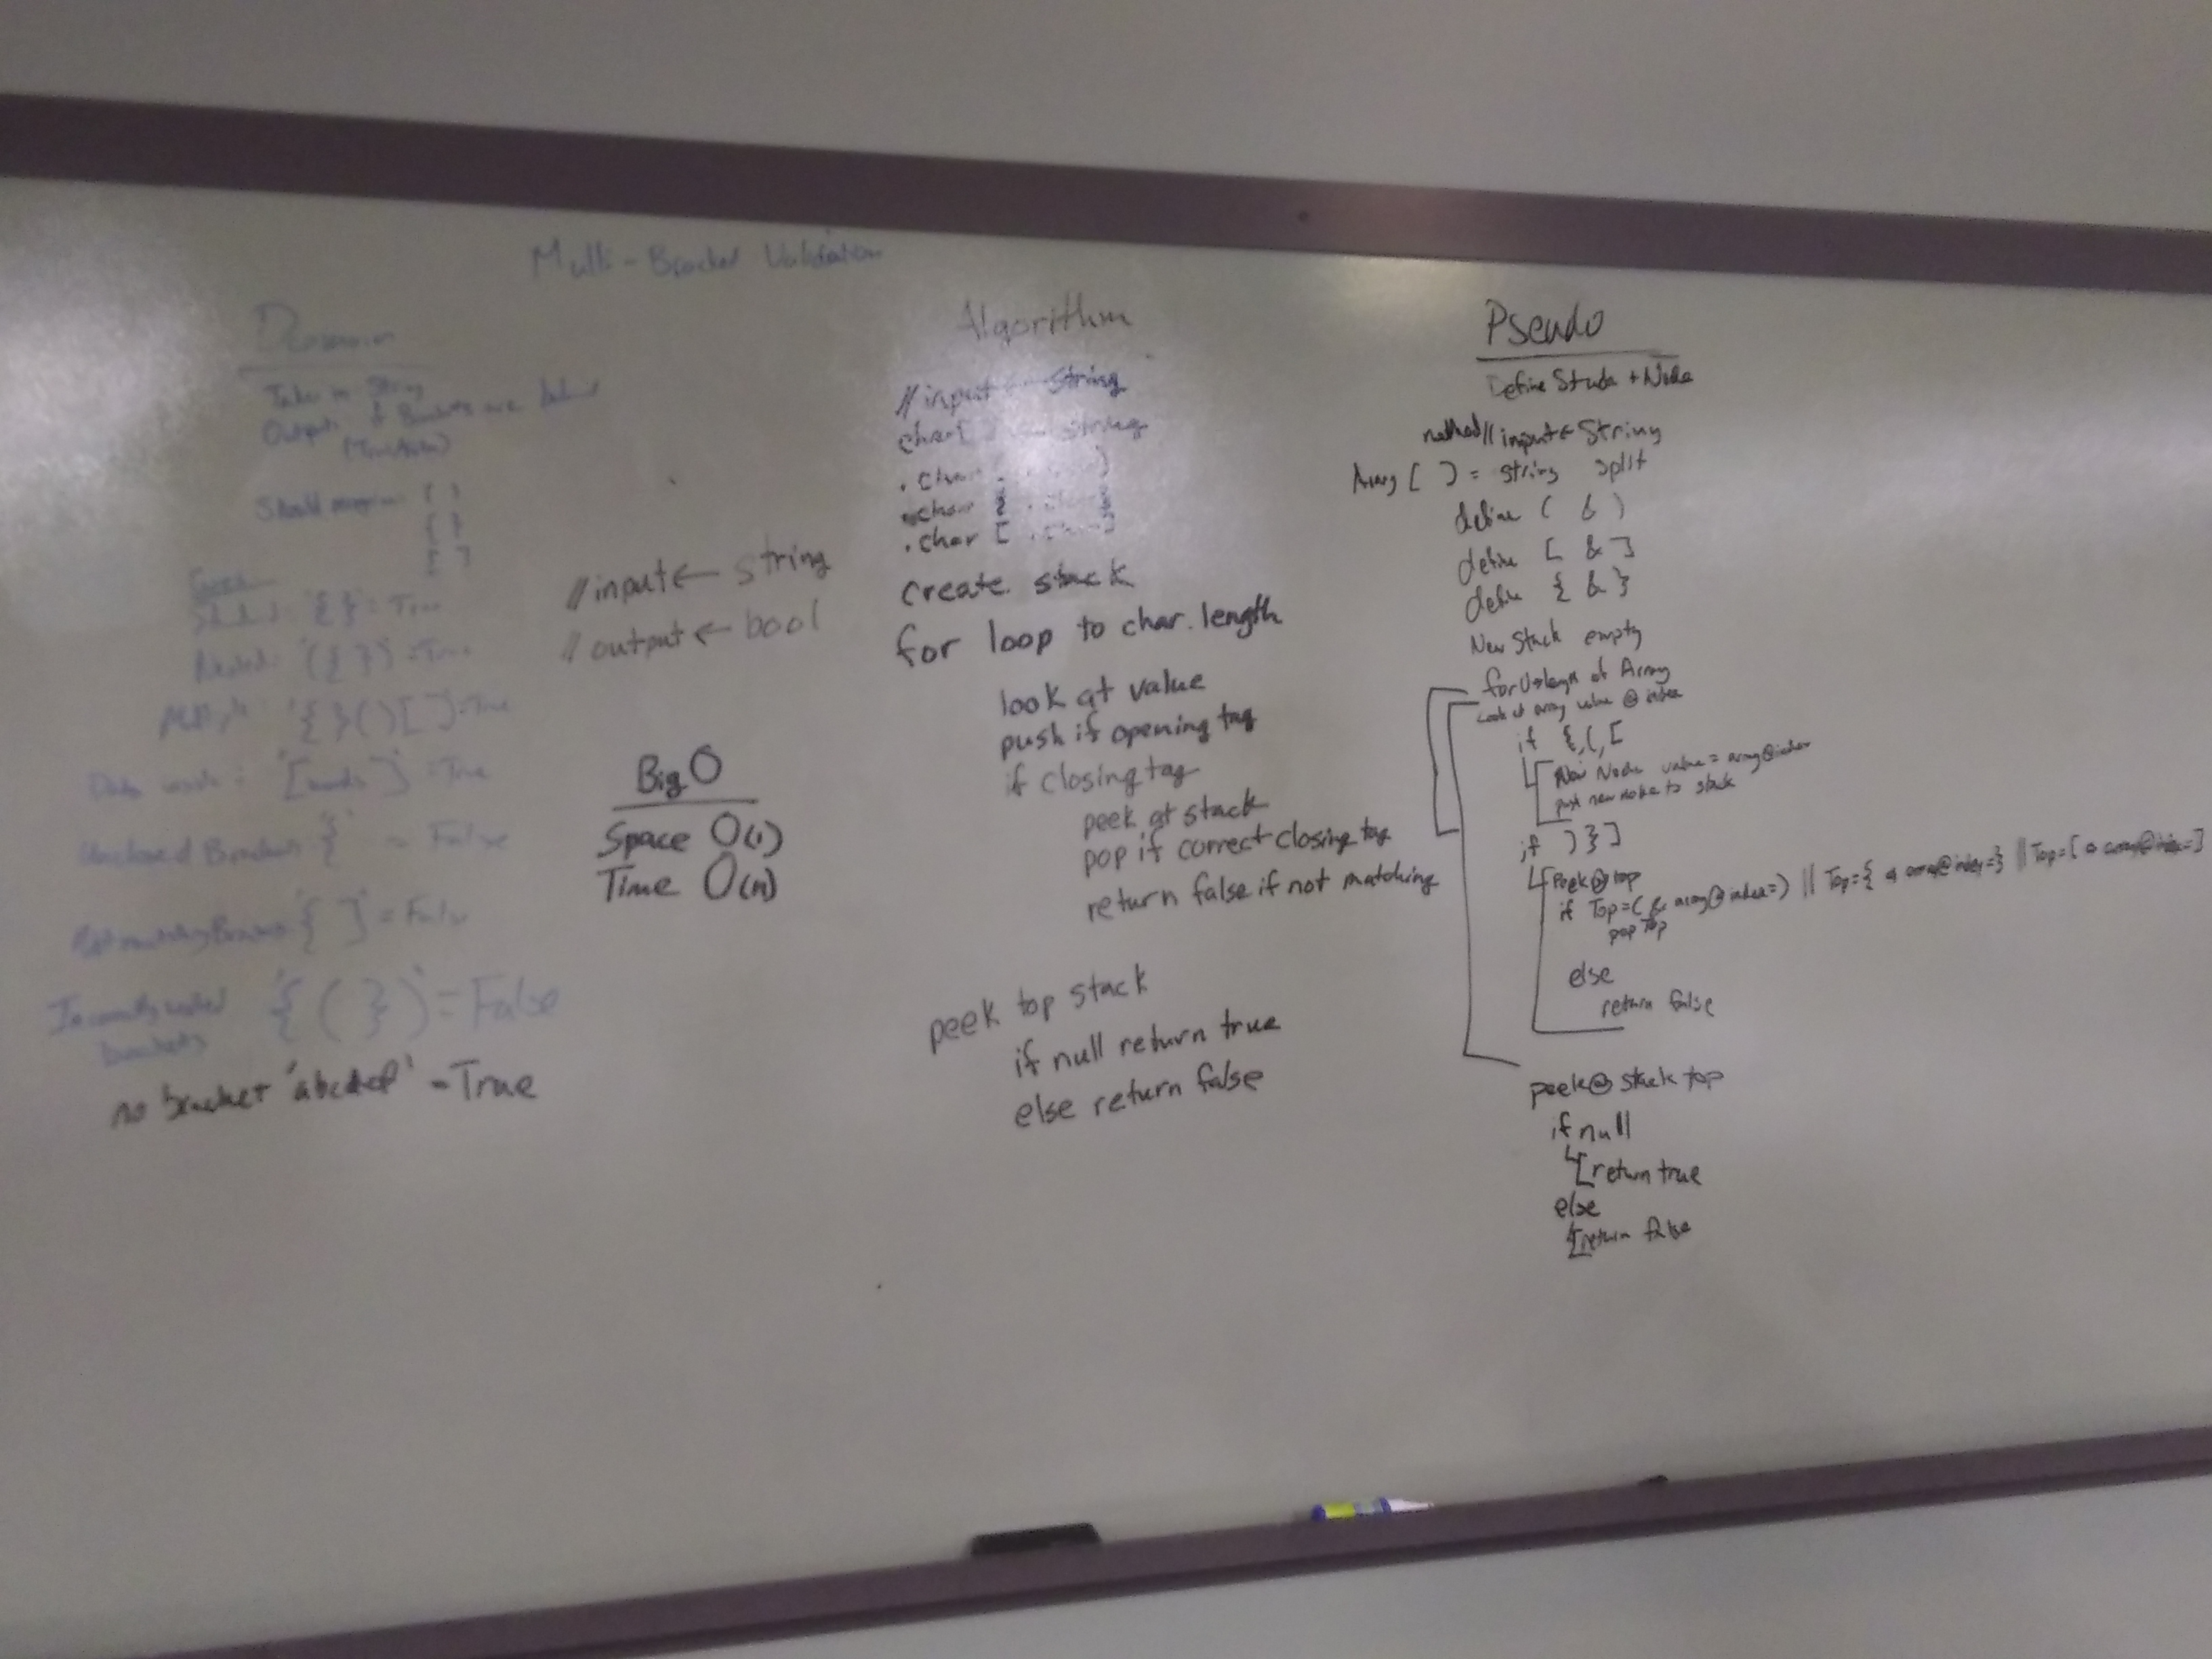 Multi-Bracket Validation
Domain
Takes in String
Output: if Brackets are
( )
{ }
[ ]
'{ }' = True
'( { } )' = True
'{ } ( ) [ ]' = True
= True
Unclosed Brackets '{' = False
Brackets '{ ]' = False
Incorrectly nested '{ ( } )' = False
brackets
no bracket 'abcdef' = True
//input ← string
//output ← bool
Big O
Space O(1)
Time O(n)
Algorithm
//input ← string
char[ string
.char )
.char { }
.char [ ]
create stack
for loop to char.length
look at value
push if opening tag
if closing tag
peek at stack
pop if correct closing tag
return false if not matching
peek top stack
if null return true
else return false
Pseudo
Define + Node
method // input ← String
Array [ ] = string split
define ( & )
define [ & ]
define { & }
New Stack empty
for 0→length of Array
Look at array value @ index
if {,(,[
New Node value = array@index
push new node to stack
if ) } ]
Peek@top
if Top=( & array@index=) || Top={ & array@index=} || Top=[ & array@index=]
pop Top
else
return false
peek@ stack top
if null
return true
else
return false